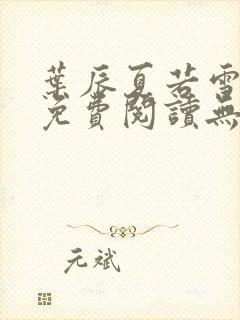 葉辰夏若雪
免費閱讀無
元斌